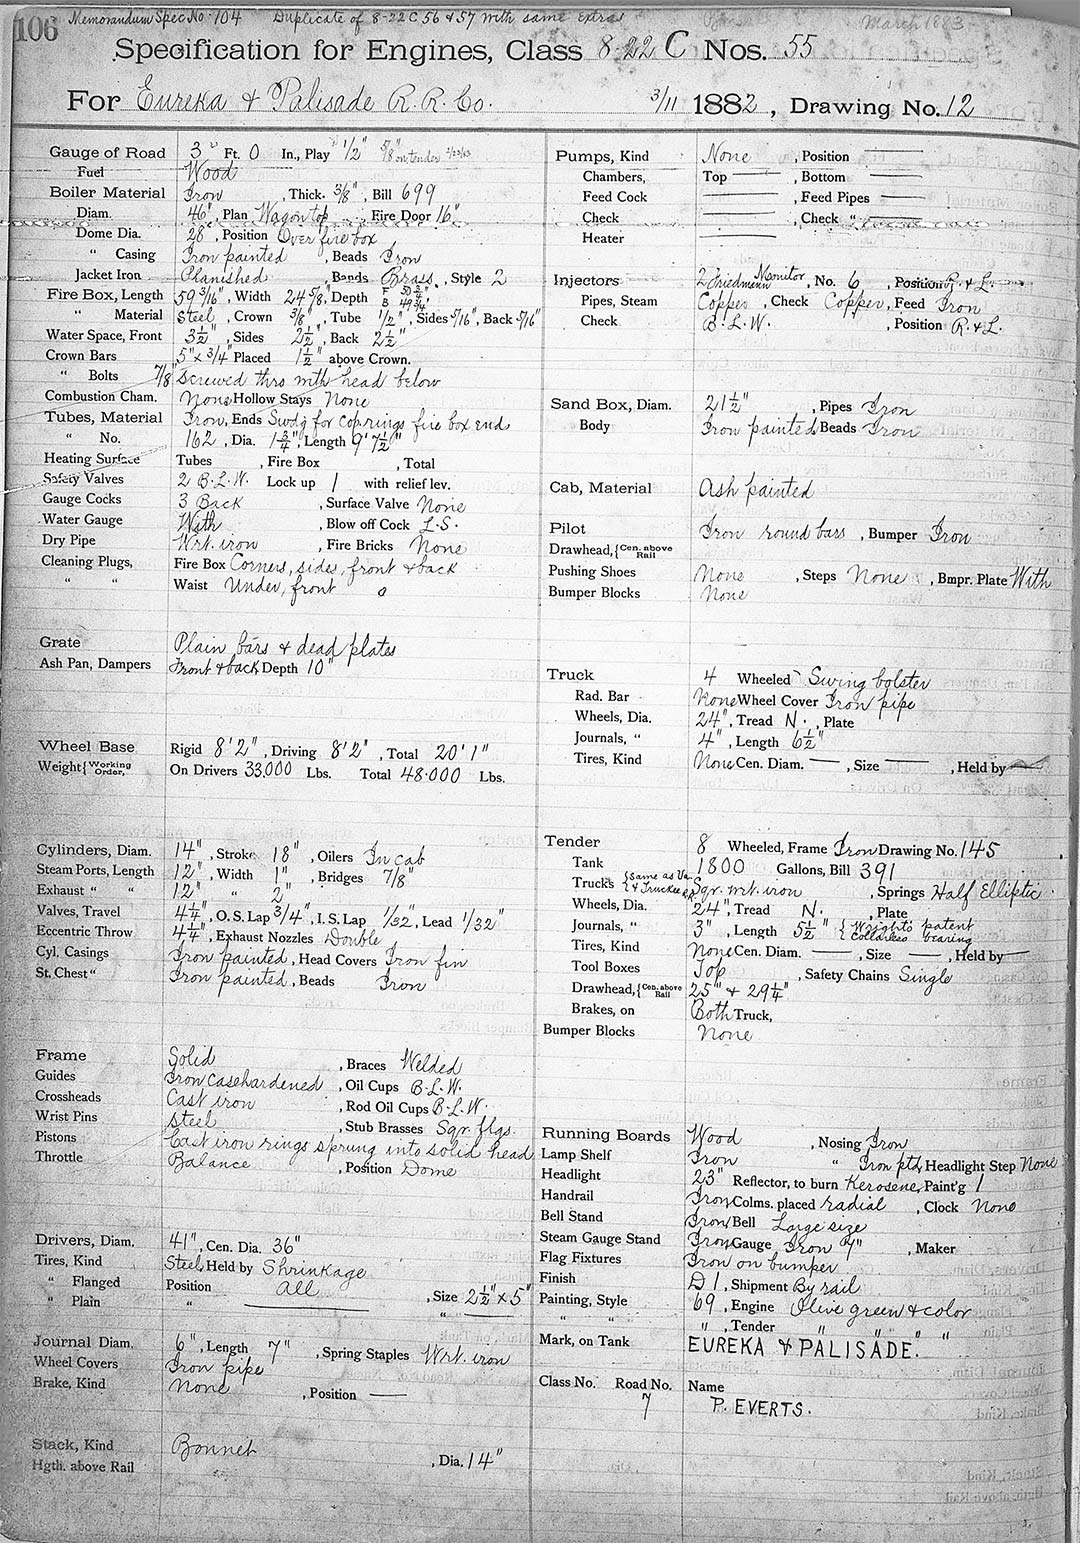 106 Memorandum Spec No. 104 Duplicate of 8-22C 56 & 57 with same extras March 1883
Specification for Engines, Class 8-22 C Nos. 55
For Eureka & Palisade R. R. Co. 3/11 1882, Drawing No. 12
Gauge of Road 3 Ft. 0 In., Play 1/2" 5/8" on tender
Fuel Wood
Boiler Material Iron, Thick. 3/8", Bill 699
Diam. 46", Plan Wagon top, Fire Door 16"
Dome Dia. 28", Position Over fire box
" Casing Iron painted, Beads Iron
Jacket Iron Planished Bands Brass, Style 2
Fire Box, Length 59 3/16", Width 24 5/8", Depth F 50 3/4" B 49 3/4"
" Material Steel, Crown 3/8", Tube 1/2", Sides 5/16", Back 5/16"
Water Space, Front 3 1/2", Sides 2 1/2", Back 2 1/2"
Crown Bars 5" x 3/4" Placed 1 1/2" above Crown.
" Bolts 7/8" Screwed thro with head below
Combustion Cham. None Hollow Stays None
Tubes, Material Iron, Ends Swdg for cop. rings fire box ends
" No. 162, Dia. 1 3/4", Length 9' 7 1/2"
Heating Surface Tubes , Fire Box , Total
Safety Valves 2 B.L.W. Lock up 1 with relief lev.
Gauge Cocks 3 Back , Surface Valve None
Water Gauge With , Blow off Cock L.S.
Dry Pipe Wrt. iron , Fire Bricks None
Cleaning Plugs, Fire Box Corners, sides, front & back
" " Waist Under, front
Grate Plain bars & dead plates
Ash Pan, Dampers Front & back Depth 10"
Wheel Base Rigid 8' 2", Driving 8' 2", Total 20' 1"
Weight { Working Order, On Drivers 33.000 Lbs. Total 48.000 Lbs.
Cylinders, Diam. 14", Stroke 18", Oilers In cab
Steam Ports, Length 12", Width 1", Bridges 7/8"
Exhaust " " 12" " 2"
Valves, Travel 4 1/4", O. S. Lap 3/4", I. S. Lap 1/32", Lead 1/32"
Eccentric Throw 4 1/4", Exhaust Nozzles Double
Cyl. Casings Iron painted, Head Covers Iron fin
St. Chest " Iron painted, Beads Iron
Frame Solid , Braces Welded
Guides Iron Casehardened, Oil Cups B.L.W.
Crossheads Cast iron , Rod Oil Cups B.L.W.
Wrist Pins Steel , Stub Brasses Sqr. flgs.
Pistons Cast iron rings sprung into solid head
Throttle Balance , Position Dome
Drivers, Diam. 41", Cen. Dia. 36"
Tires, Kind Steel, Held by Shrinkage
" Flanged Position All , Size 2 1/2" x 5"
" Plain " , "
Journal Diam. 6", Length 7", Spring Staples Wrt. iron
Wheel Covers Iron pipe
Brake, Kind None , Position —
Stack, Kind Bonnet
Hgth. above Rail , Dia. 14"
Pumps, Kind None , Position —
Chambers, Top — , Bottom —
Feed Cock — , Feed Pipes —
Check — , Check " —
Heater —
Injectors 2 Friedmann Monitor, No. 6 , Position R. & L.
Pipes, Steam Copper, Check Copper, Feed Iron
Check B.L.W. , Position R. & L.
Sand Box, Diam. 21 1/2" , Pipes Iron
Body Iron painted, Beads Iron
Cab, Material Ash painted
Pilot Iron round bars , Bumper Iron
Drawhead, { Cen. above Rail
Pushing Shoes None , Steps None , Bmpr. Plate With
Bumper Blocks None
Truck 4 Wheeled Swing bolster
Rad. Bar None Wheel Cover Iron pipe
Wheels, Dia. 24", Tread N. , Plate
Journals, " 4", Length 6 1/2"
Tires, Kind None Cen. Diam. — , Size — , Held by —
Tender 8 Wheeled, Frame Iron Drawing No. 145
Tank 1800 Gallons, Bill 391
Trucks { Same as Va. & Truckee R.R. Sqr. wrt. iron , Springs Half Elliptic
Wheels, Dia. 24", Tread N. , Plate
Journals, " 3", Length 5 1/2" { Wright's patent collarless bearing
Tires, Kind None Cen. Diam. — , Size — , Held by —
Tool Boxes Top , Safety Chains Single
Drawhead, { Cen. above Rail 25" & 29 1/4"
Brakes, on Both Truck,
Bumper Blocks None
Running Boards Wood , Nosing Iron
Lamp Shelf Iron " Iron ptd, Headlight Step None
Headlight 23" Reflector, to burn Kerosene, Paint'g 1
Handrail Iron, Colms. placed radial , Clock None
Bell Stand Iron, Bell Large size
Steam Gauge Stand Iron, Gauge Iron 7" , Maker
Flag Fixtures Iron on bumper
Finish D 1, Shipment By rail
Painting, Style 69, Engine Olive green & color
" " ", Tender " " " "
Mark, on Tank EUREKA & PALISADE.
Class No. Road No. Name
7 P. EVERTS.